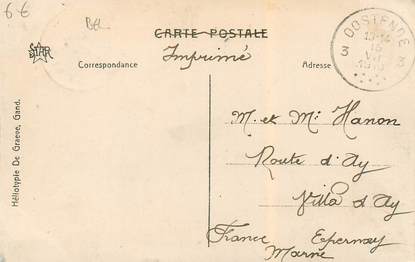 6€
BEL
CARTE POSTALE
Imprimé
STAR
Correspondance
Adresse
OOSTENDE
3 3
Héliotypie De Graeve, Gand.
M. et Mᵉ Hanon
Route d'Ay
Villa d'Ay
France Epernay
Marne